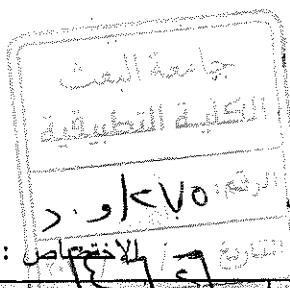 جامعة البعث
الكلية التطبيقية
الرقم: ٢٧٥/و.د
التاريخ
الاختصاص :